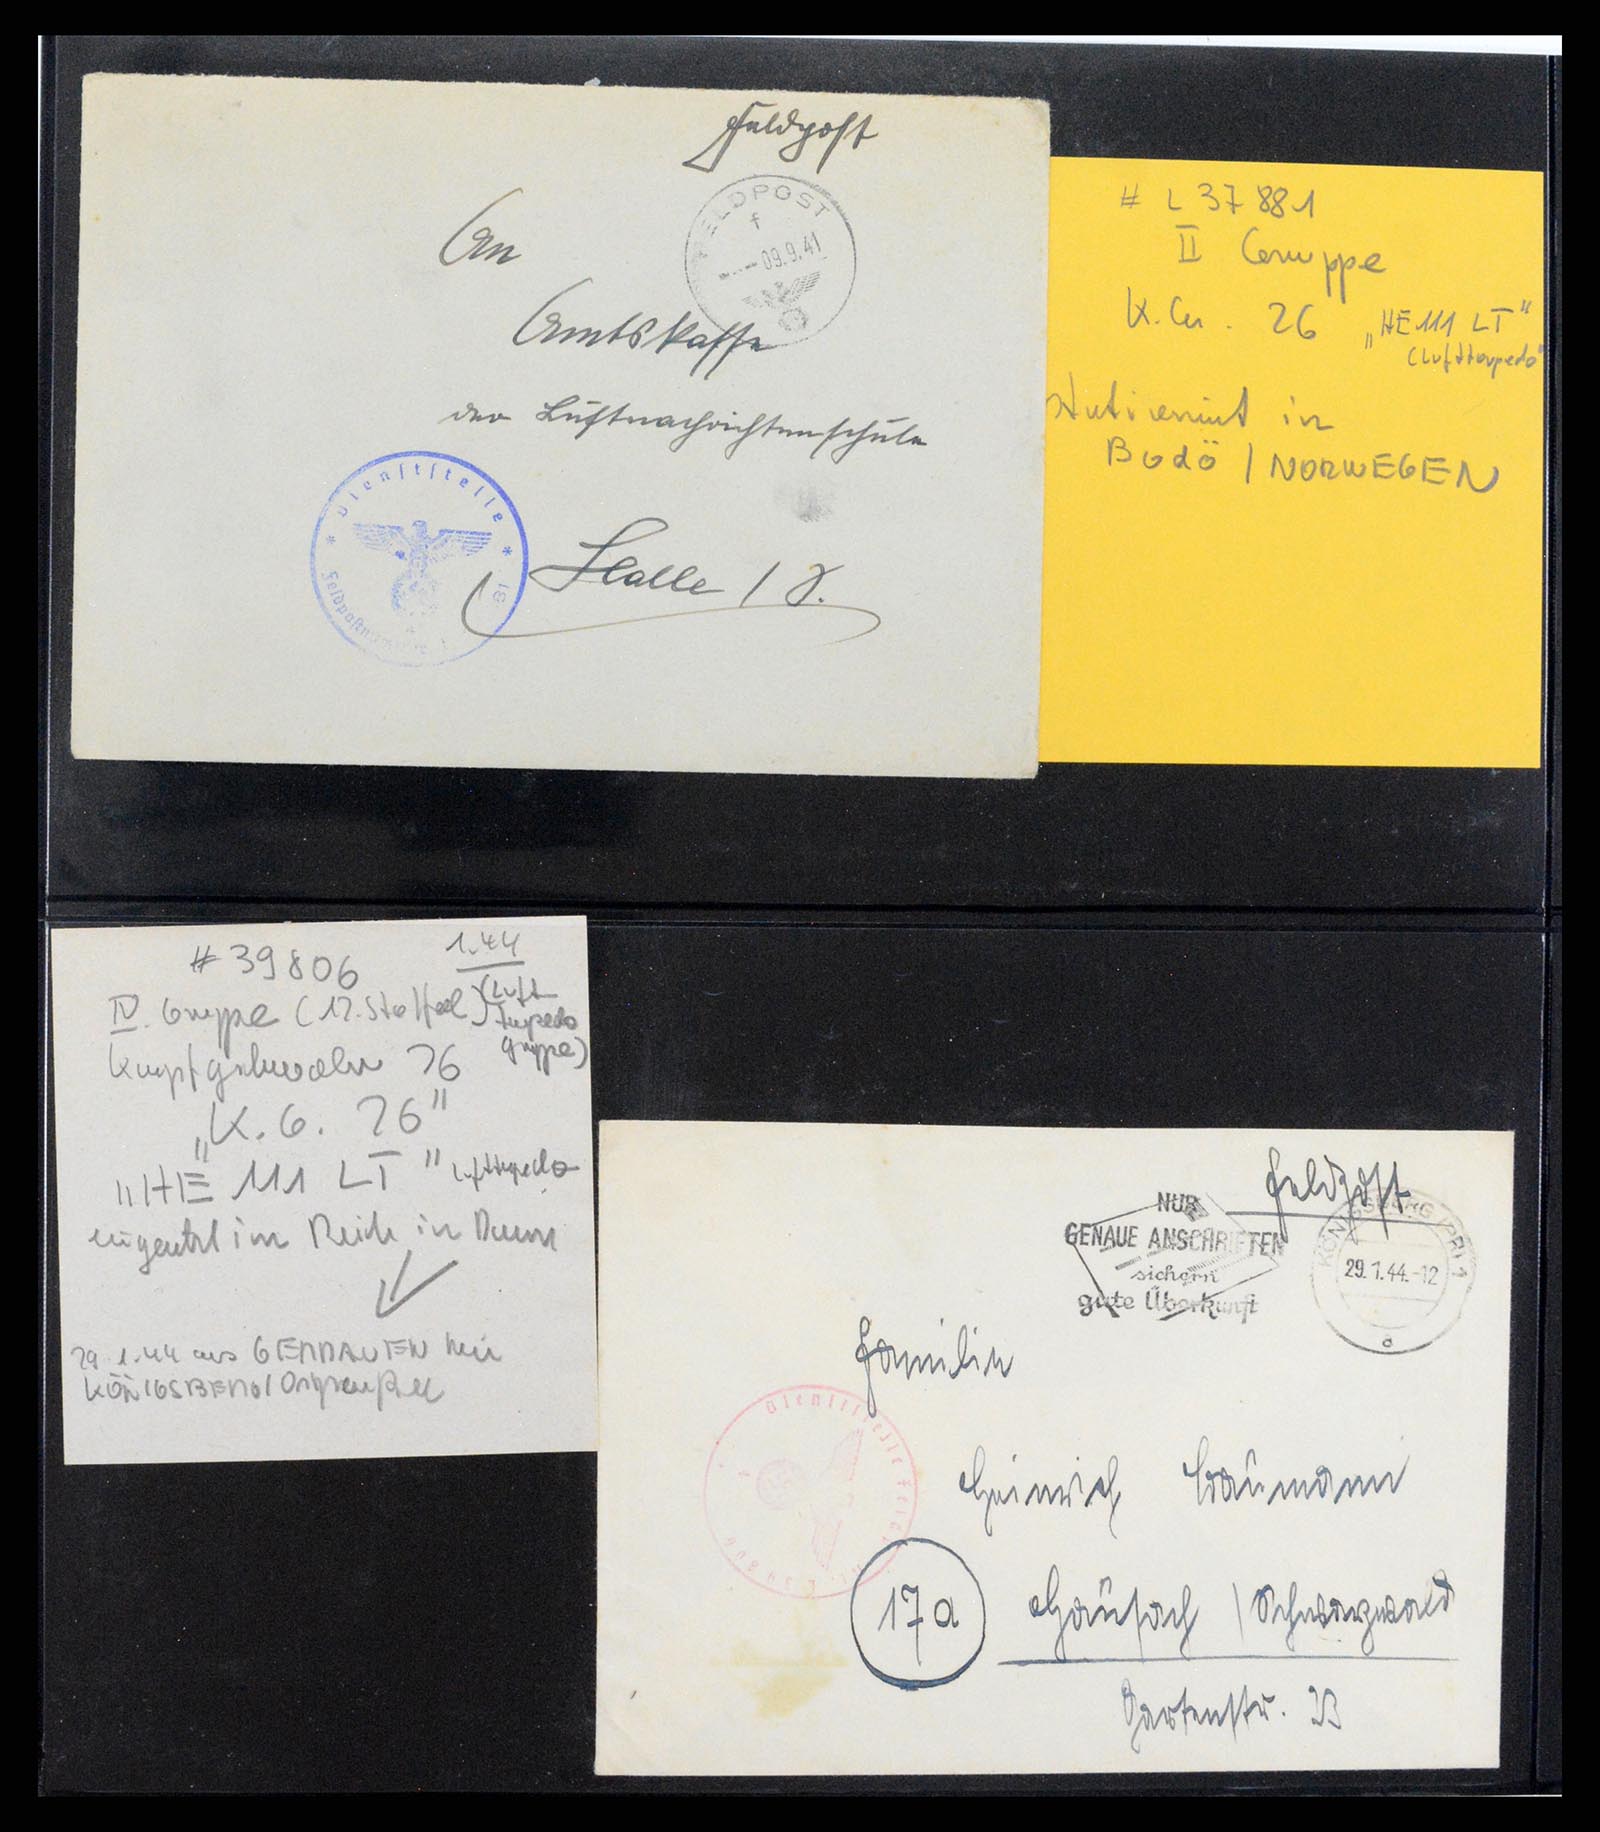 Feldpost
FELDPOST
f
09.9.41
An
Amtskasse
der Luftnachrichtenschule
Dienststelle
Halle / S.
# L 37881
II Gruppe
K.Gr. 26 „HE 111 LT"
(Lufttorpedo"
stationiert in
Bodö / NORWEGEN
#39806 1.44
IV. Gruppe (12. Staffel) (Luft
torpedo
gruppe)
Kampfgeschwader 26
„K.G. 26"
„HE 111 LT" Lufttorpedo
eingesetzt im Reich in
29.1.44 aus GERDAUEN bei
KÖNIGSBERG/Ostpreußen
Feldpost
NUR
GENAUE ANSCHRIFTEN
sichern
gute Überkunft
KÖNIGSBERG (PR) 1
29.1.44.-12
a
Familie
Dienststelle
Heinrich Baumann
17a Hausach / Schwarzwald
Gartenstr. 23